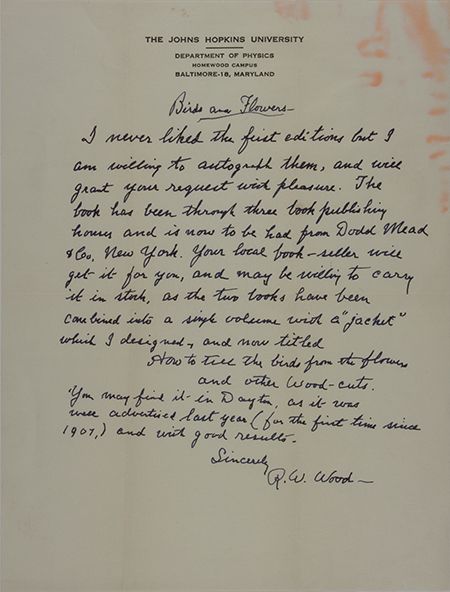 THE JOHNS HOPKINS UNIVERSITY
DEPARTMENT OF PHYSICS
HOMEWOOD CAMPUS
BALTIMORE-18, MARYLAND
Birds and Flowers
I never liked the first editions but I
am willing to autograph them, and will
grant your request with pleasure. The
book has been through three book publishing
houses and is now to be had from Dodd Mead
& Co, New York. Your local book-seller will
get it for you, and may be willing to carry
it in stock, as the two books have been
combined into a single volume with a "jacket"
which I designed, and now titled
How to tell the birds from the flowers
and other Wood-cuts.
You may find it in Dayton, as it was
well advertised last year (for the first time since
1907,) and with good results.
Sincerely
R. W. Wood